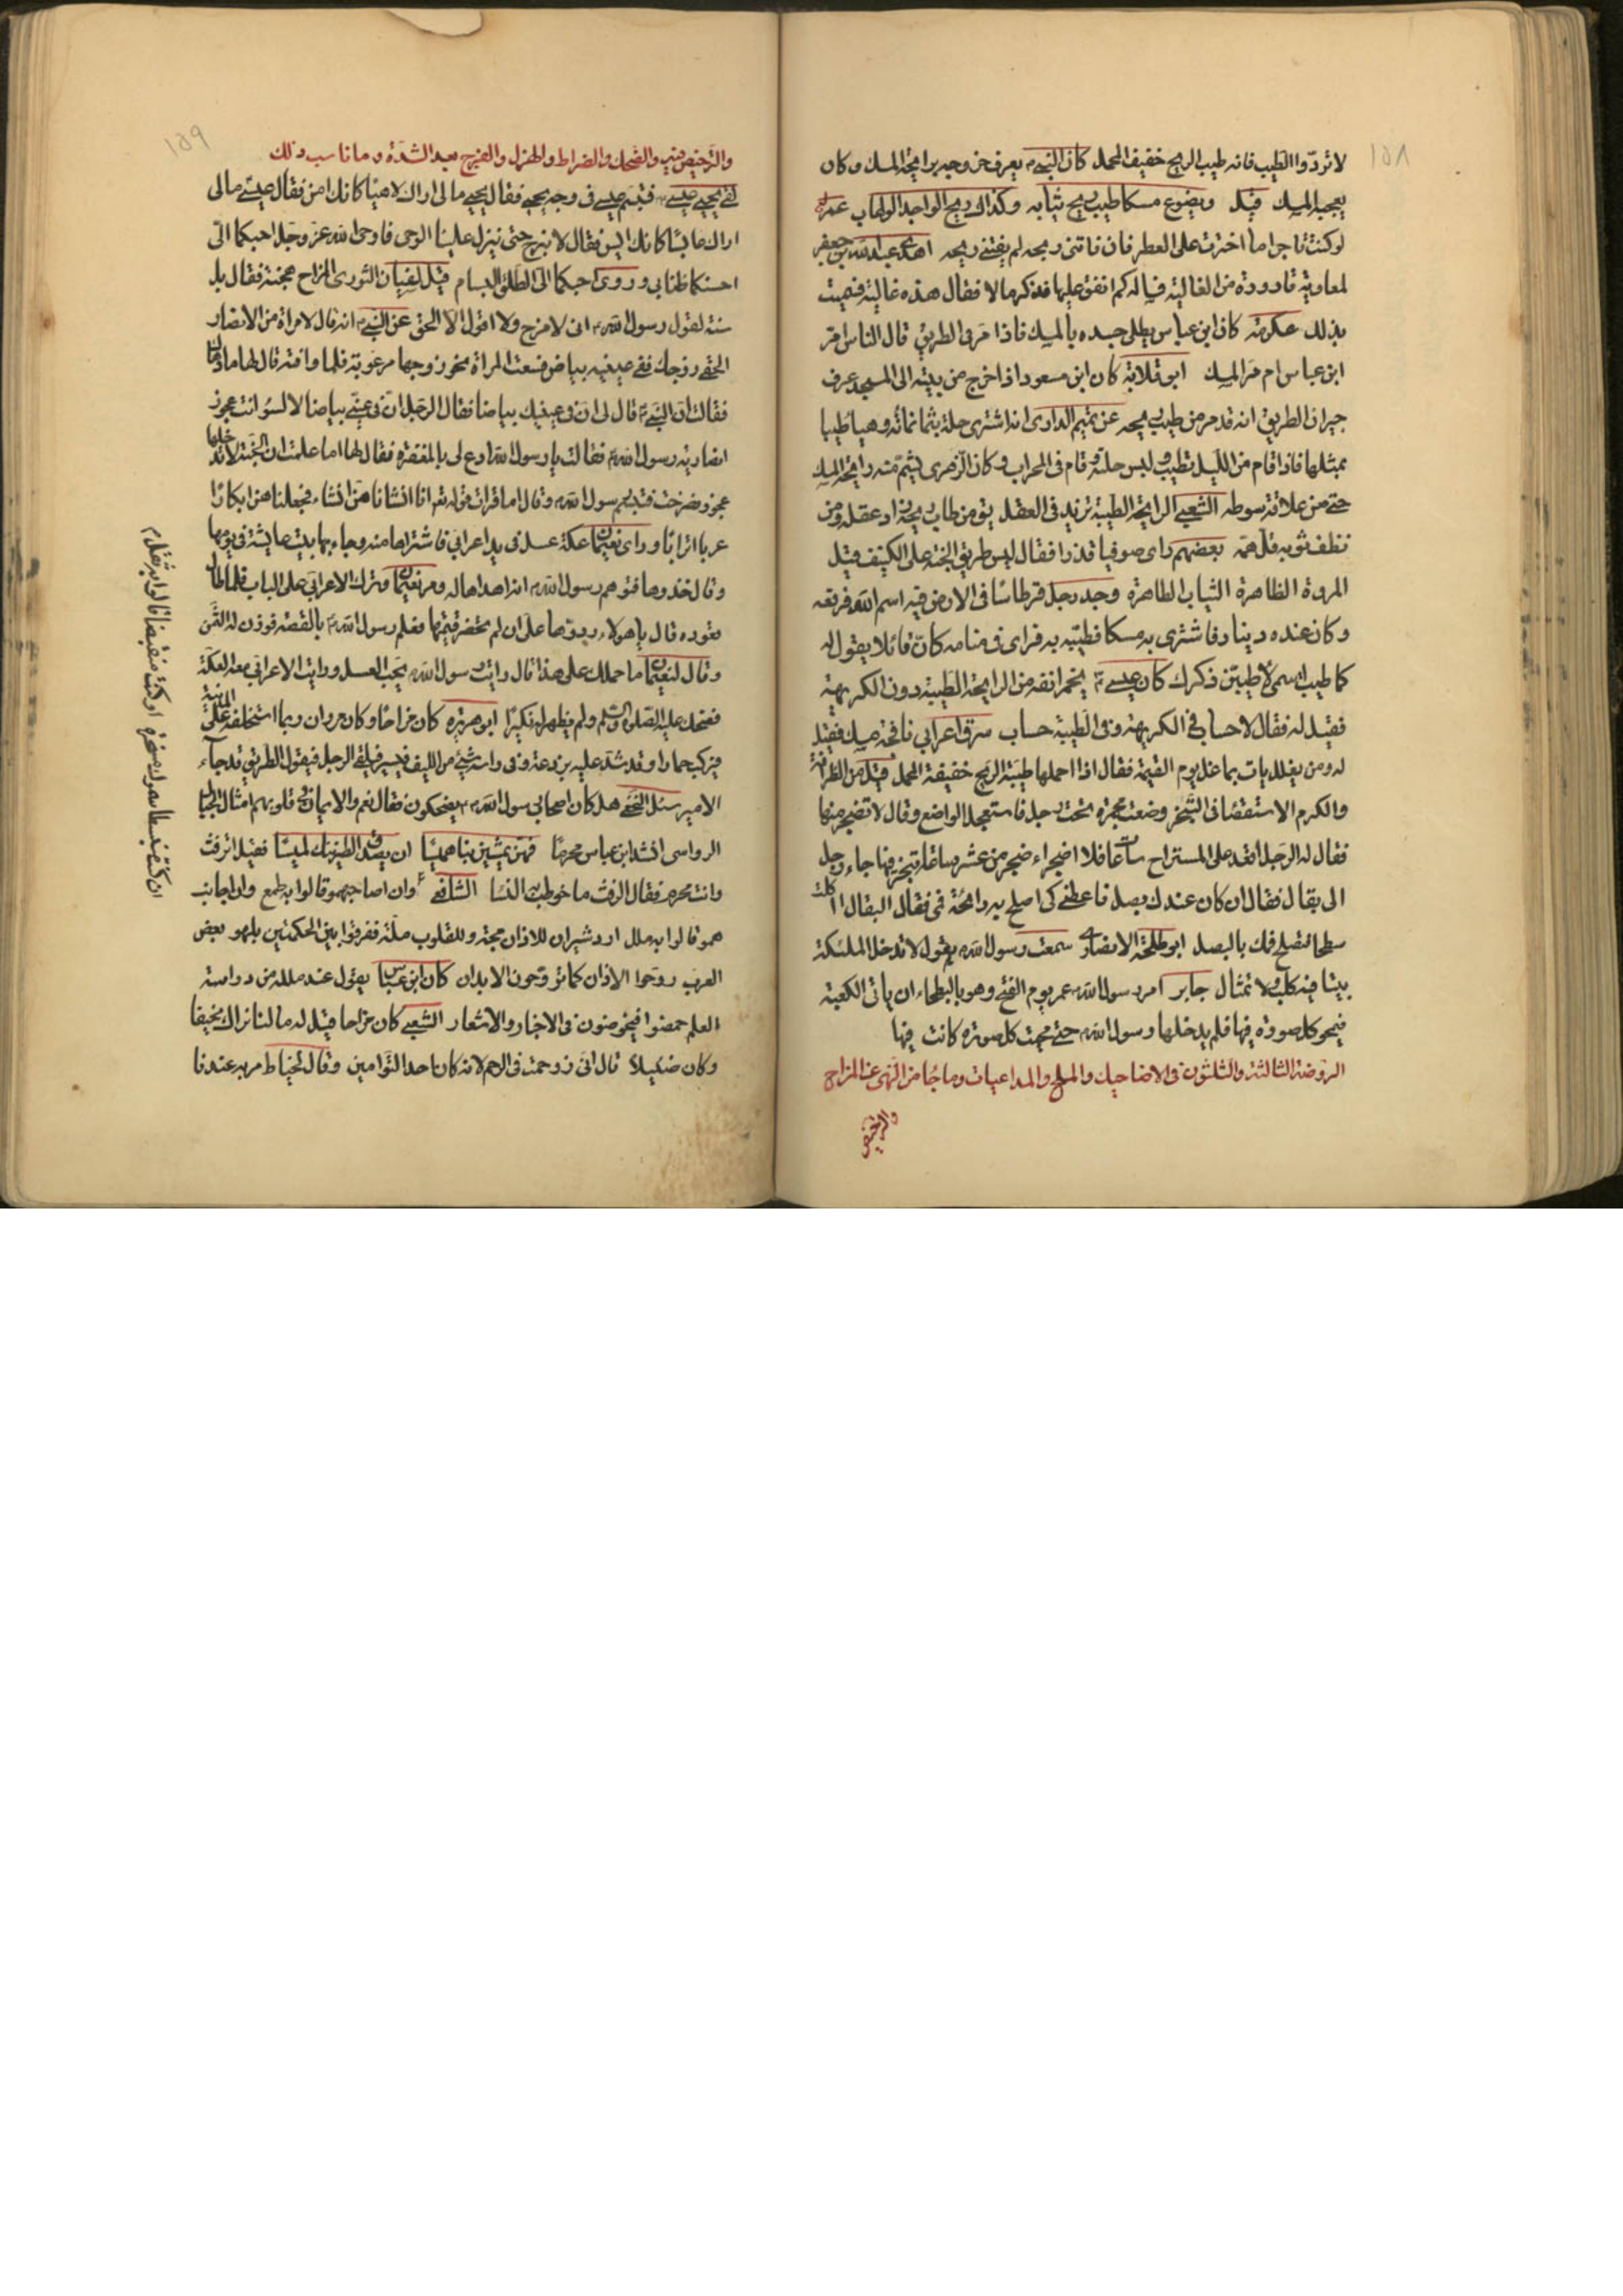 ١٥٨
لا تردّوا الطيب فانه طيب الريح خفيف المحمل كان النبي ؐ يعرف خروجه برايحة المسك وكان
يعجبه المسك قيل ويضوع مسكا طيب ريح ثيابه وكذاك ريح الواجد الوهاب عمر
لو كنت تاجرا ما اخترت على العطر فان فاتنى ربحه لم يفتنى ريحه اهدى عبد الله بن جعفر
لمعاوية قارورة من الغالية فساله كم انفق عليها فذكر مالا فقال هذه غالية فسميت
بذلك عكرمة كان ابن عباس يطلى جسده بالمسك فاذا مر فى الطريق قال الناس امر
ابن عباس ام مر المسك ابو قلابة كان ابن مسعود اذا خرج من بيته الى المسجد عرف
جيران الطريق انه قد مر من طيب ريحه عن تميم الدارى انه اشترى حلة بثمانمائة وهيا طيبا
بمثلها فاذا قام من الليل تطيب ولبس حلته وقام فى المحراب وكان الزهرى يشم منه رايحة المسك
حتى من علاقة سوطه الشعبى الرايحة الطيبة تزيد فى العقل يق من طاب ريحه زاد عقله ومن
نظف ثوبه قل همه بعضهم راى صوفيا قذرا فقال ليس طريق الجنة على الكنيف قيل
المروة الظاهرة الثياب الطاهرة وجد رجل قرطاسا فى الارض فيه اسم الله فرفعه
وكان عنده دينار فاشترى به مسكا فطيبه به فراى فى منامه كان قائلا يقول له
كما طيبت اسمى لاطيبن ذكرك كان عيسى ؑ يخمر انفه من الرايحة الطيبة دون الكريهة
فقيل له فقال لا حساب فى الكريهة وفى الطيبة حساب سرق اعرابى نافجة مسك فقيل
له ومن يغلل يات بما غل يوم القيمة فقال اذا احملها طيبة الريح خفيفة المحمل قيل من الظرافة
والكرم الاستقصاء فى التبخر وضعت مجمرة تحت رجل فاستعجل الواضع وقال لا تضجر منها
فقال له الرجل اقعد على المستراح ساعات فلا اضجر اء ضجر من عشر ساعة اتبخر فيها جاء رجل
الى بقال فقال ان كان عندك بصل فاعطنى كى اصلح به رائحة فمى فقال البقال اأكلت
سلحا تصلح فمك بالبصل ابو طلحة الانصارى سمعت رسول الله ؐ يقول لا تدخل الملئكة
بيتا فيه كلب ولا تمثال جابر امر رسول الله ؐ عمر يوم الفتح وهو بالبطحاء ان ياتى الكعبة
فيمحو كل صورة فيها فلم يدخلها رسول الله ؐ حتى محيت كل صورة كانت فيها
الروضة الثالثة والثلثون فى الاضاحيك والملح والمداعبات وما جاء من النهى عن المزاح
والترخيص
١٥٩
والترخيص فيه والضحك والضراط والهزل والفرج بعد الشدة وما ناسب ذلك
لقى يحيى عيسى ؑ فتبسم عيسى فى وجه يحيى فقال يحيى مالى اراك لاهيا كانك امن فقال عيسى مالى
اراك عابسا كانك ايس فقال لا نبرح حتى ينزل علينا الوحى فاوحى الله عز وجل احبكما الى
احسنكما ظنا بى وروى احبكما الى الطلق البسام قيل لسفيان الثورى المزاح هجنة فقال بل
سنة لقول رسول الله ؐ انى لامزح ولا اقول الا الحق عن النبى ؐ انه قال لامراة من الانصار
الحقى زوجك ففى عينيه بياض فسعت المراة نحو زوجها مرعوبة فلما وافته قال لها ما دهاك
فقالت ان النبى ؐ قال لى ان فى عينيك بياضا فقال الرجل ان فى عينى بياضا لا لسوء اتت عجوز
انصارية رسول الله ؐ فقالت يا رسول الله ادع لى بالمغفرة فقال لها اما علمت ان الجنة لا تدخلها
عجوز فصرخت فتبسم رسول الله ؐ وقال اما قرات قوله تع انا انشاناهن انشاء فجعلناهن ابكارا
عربا اترابا وراى نعيمان عكة عسل فى يد اعرابى فاشتراها منه وجاء بها بيت عايشة فى يومها
وقال خذوها فتوهم رسول الله ؐ انه اهداها له ومر نعيمان وترك الاعرابى على الباب فلما طال
قعوده قال يا هؤلاء ردوها على ان لم تحضر قيمتها فعلم رسول الله ؐ بالقصة فوزن له الثمن
وقال لنعيمان ما حملك على هذا قال رايت رسول الله ؐ يحب العسل ورايت الاعرابى معه العكة
فضحك عليه الصلوة والسلم ولم يظهر له نكيرا ابو هريرة كان مزاحا وكان مروان ربما استخلفه على المدينة
فيركب حمارا وقد شد عليه برذعة وفى راسه شئ من الليف فيسير فيلقى الرجل فيقول الطريق قد جاء
الامير سئل النخعى هل كان اصحاب رسول الله ؐ يضحكون فقال نعم والايمان فى قلوبهم امثال الجبال
الرواسى انشد ابن عباس محرما فهن يمشين بنا هميسا ان يصدق الطير ننك لميسا فقيل اترفث
وانت محرم فقال الرفث ما خوطب به النساء الشافعى ؓ وان اصاحبهم وقالوا به طمع وان اجانب
هم وقالوا به ملل اردشير ان للاذان مجة وللقلوب ملة ففرقوا بين الحكمتين بلهو بعض
العرب روحوا الاذان كما تروحون الابدان كان ابن عباس يقول عند ملله من دراسة
العلم حمضوا فيخوضون فى الاخبار والاشعار الشعبى كان مزاحا قيل له مالنا نراك نحيفا
وكان ضئيلا قال انى زوحمت فى الرحم لانه كان احد التوامين وقال لخياط مر به عندنا